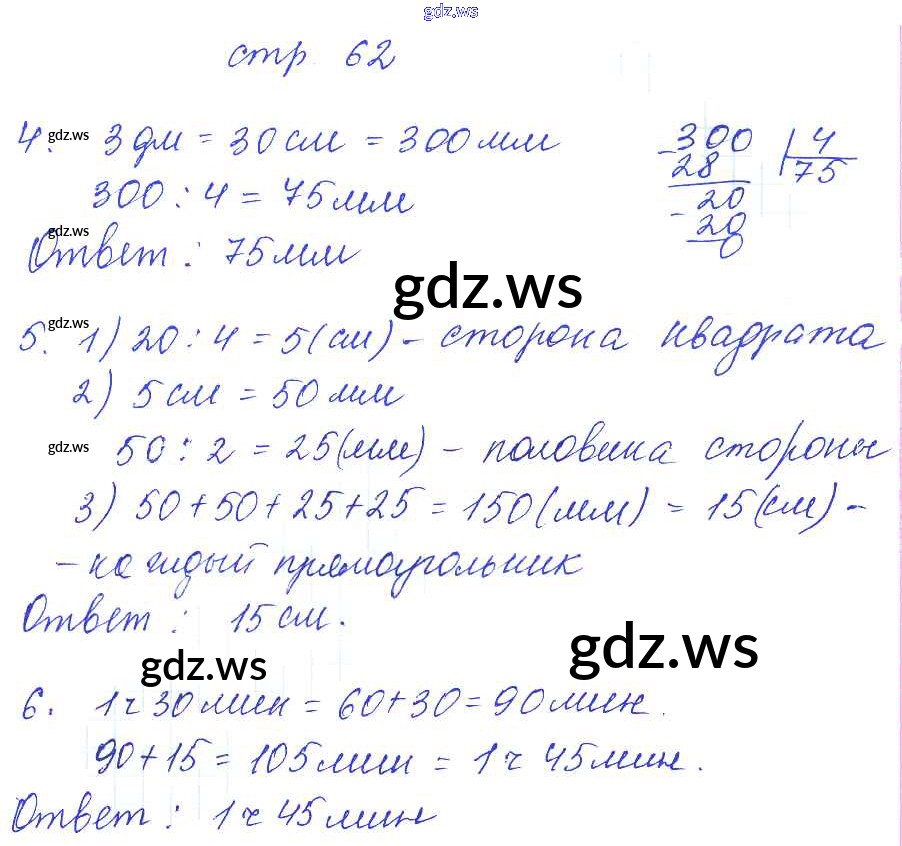 gdz.ws
стр. 62
4. gdz.ws 3 дм = 30 см = 300 мм
300 : 4 = 75 мм
gdz.ws
Ответ : 75 мм
-300 | 4
28 75
-20
20
0
gdz.ws
5. gdz.ws 1) 20 : 4 = 5 (см) - сторона квадрата
2) 5 см = 50 мм
gdz.ws 50 : 2 = 25 (мм) - половина стороны
3) 50 + 50 + 25 + 25 = 150 (мм) = 15 (см) -
- каждый прямоугольник
Ответ : 15 см.
gdz.ws
gdz.ws
6. 1 ч 30 мин = 60 + 30 = 90 мин.
90 + 15 = 105 мин = 1 ч 45 мин.
Ответ : 1 ч 45 мин